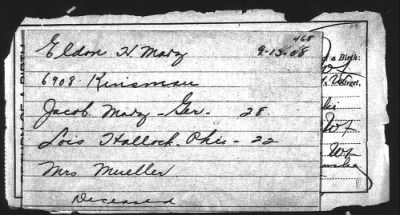 468
Eldon H Marz 9-15-08
6908 Kinsman
Jacob Marz - Ger. - 28
Lois Hallock. Ohio - 22
Mrs Mueller
Deceased
of a Birth:
Street,